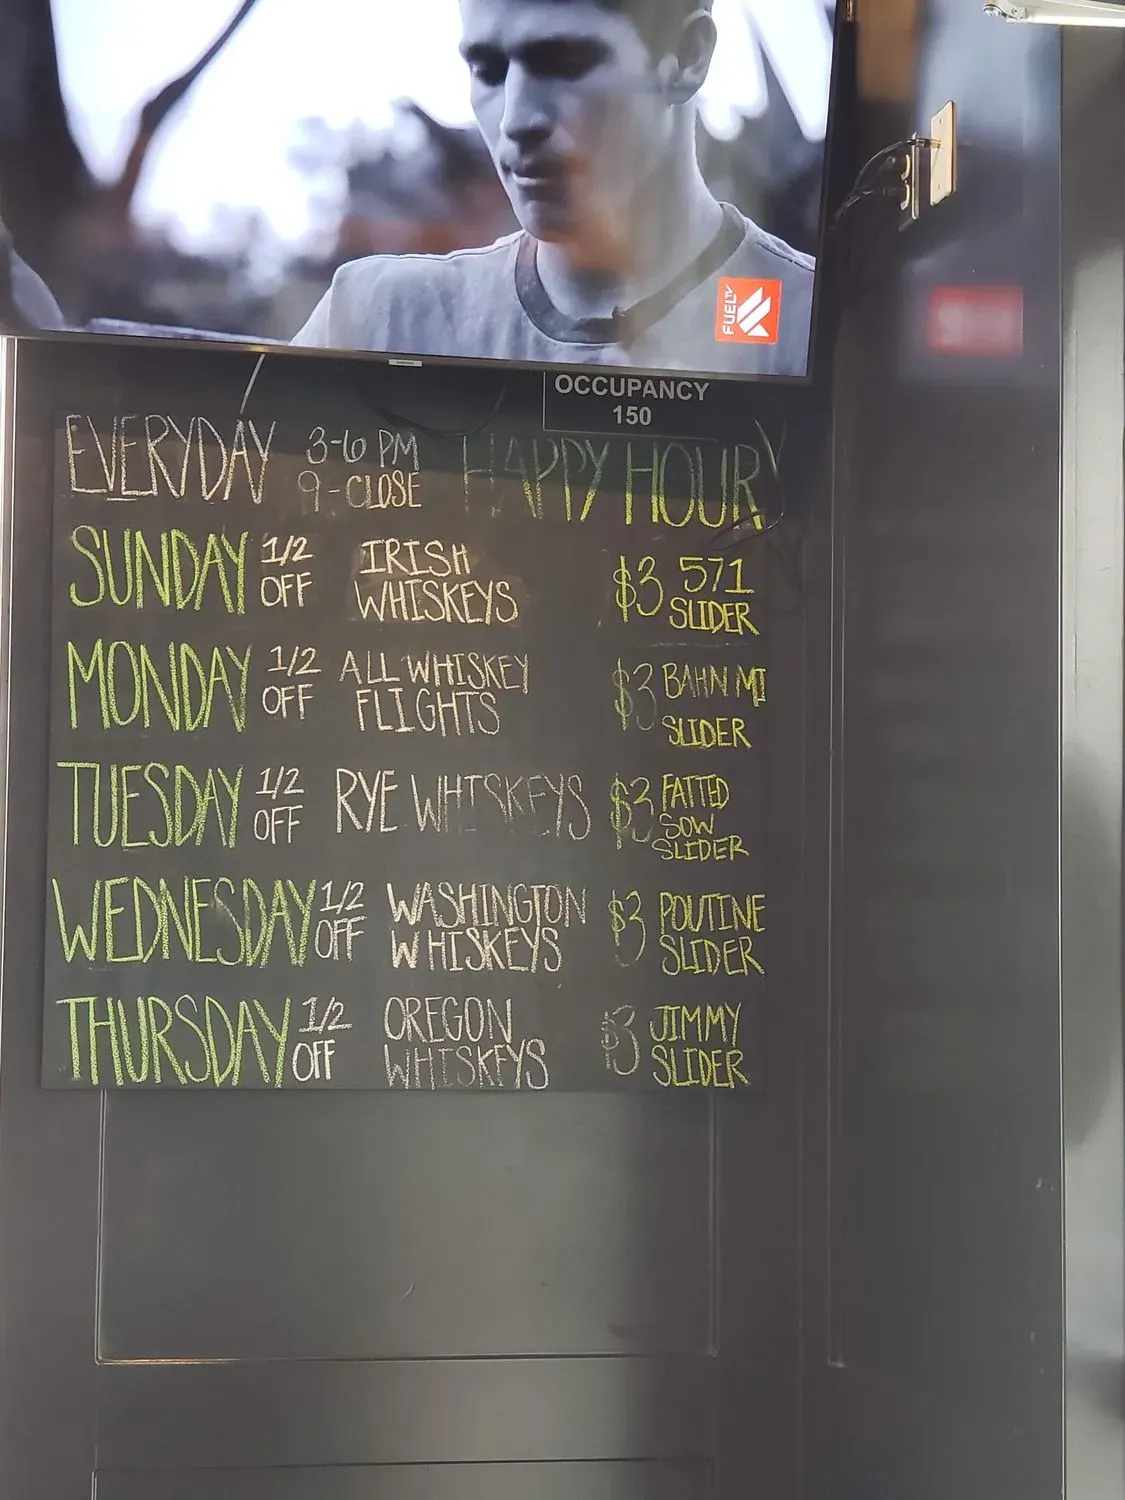 FUEL TV
SAMSUNG
OCCUPANCY
150
EVERYDAY 3-6 PM HAPPY HOUR
9-CLOSE
SUNDAY 1/2 OFF IRISH WHISKEYS $3 571 SLIDER
MONDAY 1/2 OFF ALL WHISKEY FLIGHTS $3 BAHN MI SLIDER
TUESDAY 1/2 OFF RYE WHISKEYS $3 FATTED SOW SLIDER
WEDNESDAY 1/2 OFF WASHINGTON WHISKEYS $3 POUTINE SLIDER
THURSDAY 1/2 OFF OREGON WHISKEYS $3 JIMMY SLIDER